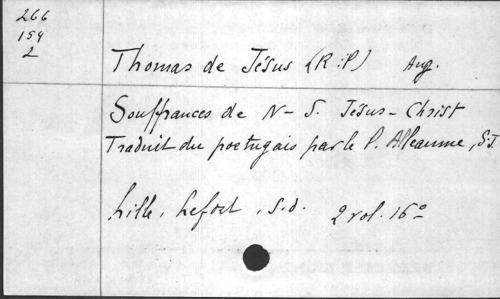 266
154
2
Thomas de Jésus (R.P) Aug.
Souffrances de N-S. Jésus-Christ
Traduit du portugais par le P. Alleaume, SJ
Lille, Lefort, s.d. 2 vol. 16°